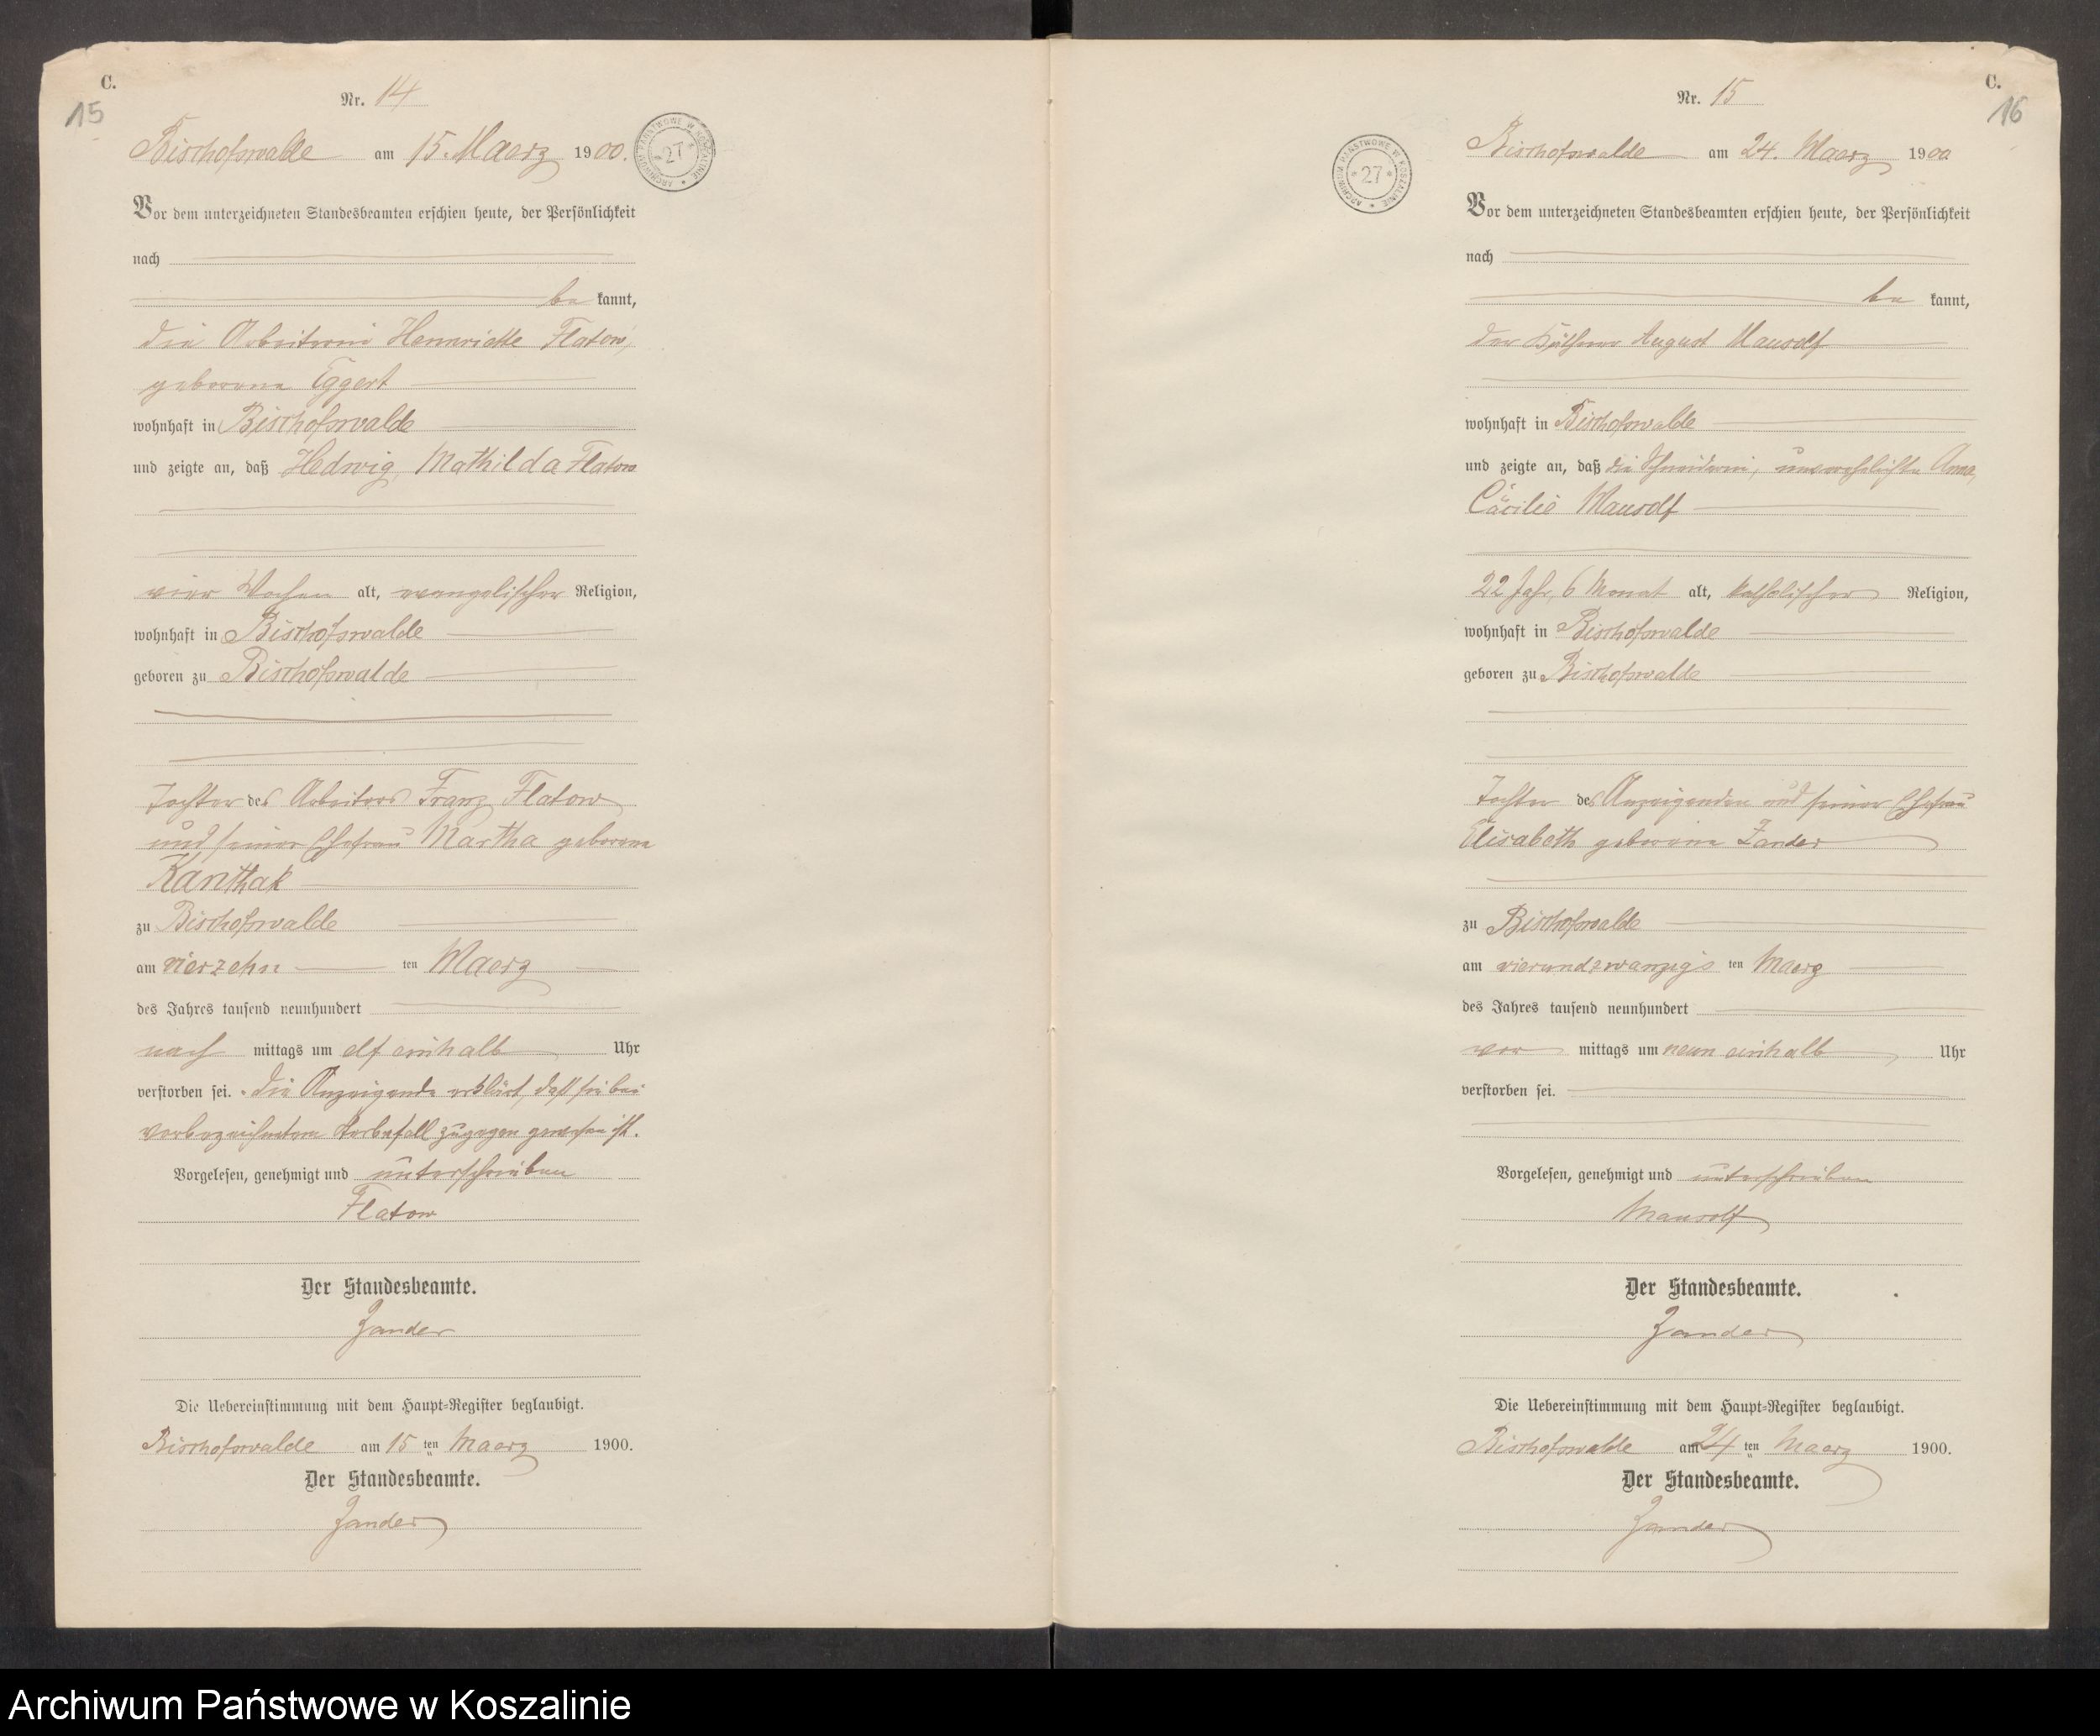 C.
15
Nr. 14
Bischofswalde am 15. Maerz 1900.
ARCHIWUM PAŃSTWOWE W KOSZALINIE * 27 *
Vor dem unterzeichneten Standesbeamten erschien heute, der Persönlichkeit
nach
be kannt,
die Arbeiterin Hennriette Flatow,
geborene Eggert
wohnhaft in Bischofswalde
und zeigte an, daß Hedwig, Mathilda Flatow
vier Wochen alt, evangelischer Religion,
wohnhaft in Bischofswalde
geboren zu Bischofswalde
Tochter des Arbeiters Franz Flatow
und seiner Ehefrau Martha geborene
Kanthak
zu Bischofswalde
am vierzehn ten Maerz
des Jahres tausend neunhundert
nach mittags um elf einhalb Uhr
verstorben sei. Die Anzeigende erklärt, daß sie bei
vorbezeichnetem Sterbefall zugegen gewesen ist.
Vorgelesen, genehmigt und unterschrieben
Flatow
Der Standesbeamte.
Zander
Die Uebereinstimmung mit dem Haupt-Register beglaubigt.
Bischofswalde am 15 ten Maerz 1900.
Der Standesbeamte.
Zander
C.
16
Nr. 15
Bischofswalde am 24. Maerz 1900
ARCHIWUM PAŃSTWOWE W KOSZALINIE * 27 *
Vor dem unterzeichneten Standesbeamten erschien heute, der Persönlichkeit
nach
be kannt,
der August Mausolf
wohnhaft in Bischofswalde
und zeigte an, daß die Schneiderin, unverehelichte Anna,
Cäcilie Mausolf
22 Jahr, 6 Monat alt, katholischer Religion,
wohnhaft in Bischofswalde
geboren zu Bischofswalde
Tochter des Anzeigenden und seiner Ehefrau
Elisabeth geborene Zander
zu Bischofswalde
am vierundzwanzigs ten Maerz
des Jahres tausend neunhundert
vor mittags um neun einhalb Uhr
verstorben sei.
Vorgelesen, genehmigt und unterschrieben
Mausolf
Der Standesbeamte.
Zander
Die Uebereinstimmung mit dem Haupt-Register beglaubigt.
Bischofswalde am 24 ten Maerz 1900.
Der Standesbeamte.
Zander
Archiwum Państwowe w Koszalinie